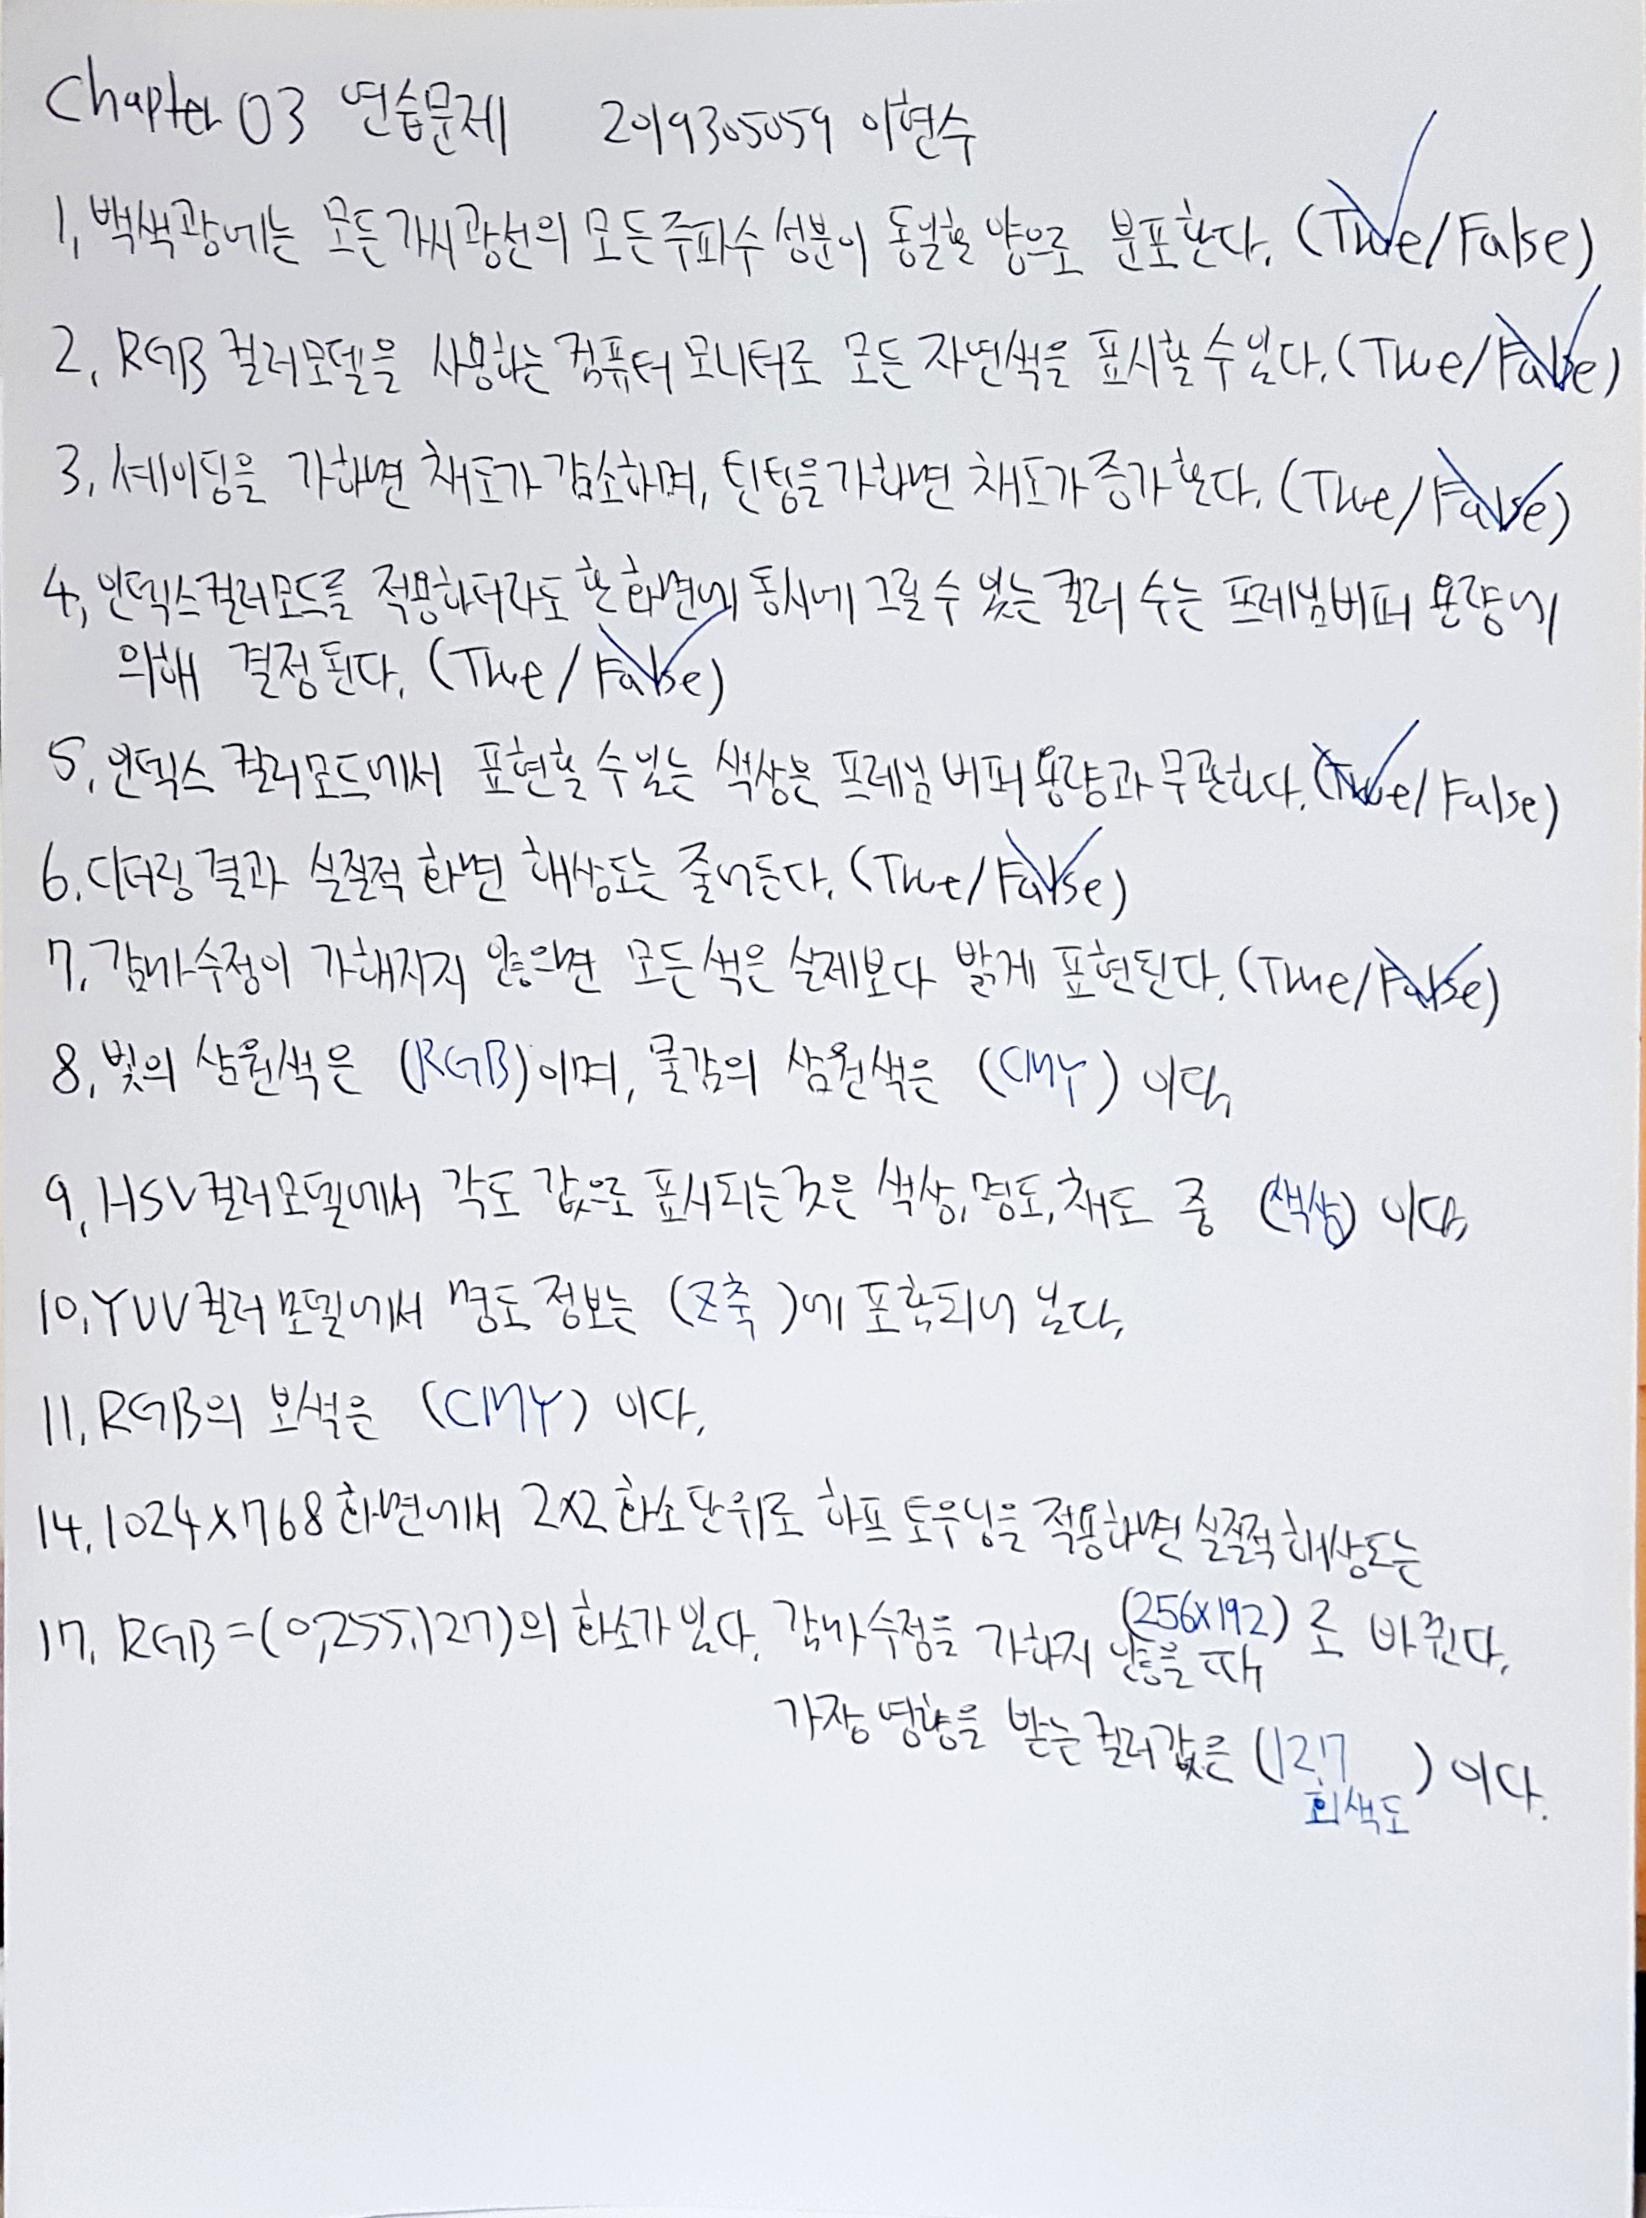 Chapter 03 연습문제 2019305059 이현수
1, 백색광에는 모든 가시광선의 모든 주파수 성분이 동일한 양으로 분포한다. (True/False)
2, RGB 컬러모델을 사용하는 컴퓨터 모니터로 모든 자연색을 표시할 수 있다. (True/False)
3, 셰이딩을 가하면 채도가 감소하며, 틴팅을 가하면 채도가 증가한다. (True/False)
4, 인덱스 컬러모드를 적용하더라도 한 화면에 동시에 그릴 수 있는 컬러 수는 프레임 버퍼 용량에
의해 결정된다. (True/False)
5, 인덱스 컬러모드에서 표현할 수 있는 색상은 프레임 버퍼 용량과 무관하다. (True/False)
6, 디더링 결과 실질적 화면 해상도는 줄어든다. (True/False)
7, 감마수정이 가해지지 않으면 모든 색은 실제보다 밝게 표현된다. (True/False)
8, 빛의 삼원색은 (RGB)이며, 물감의 삼원색은 (CMY) 이다,
9, HSV컬러모델에서 각도 값으로 표시되는 것은 색상, 명도, 채도 중 (색상) 이다,
10, YUV컬러모델에서 명도 정보는 (Z축)에 포함되어 있다,
11, RGB의 보색은 (CMY) 이다,
14. 1024×768 화면에서 2×2 화소 단위로 하프 토우닝을 적용하면 실질적 해상도는
(256×192) 로 바뀐다,
17. RGB=(0,255,127)의 화소가 있다. 감마수정을 가하지 않을 때
가장 영향을 받는 컬러값은 (127 회색도) 이다.